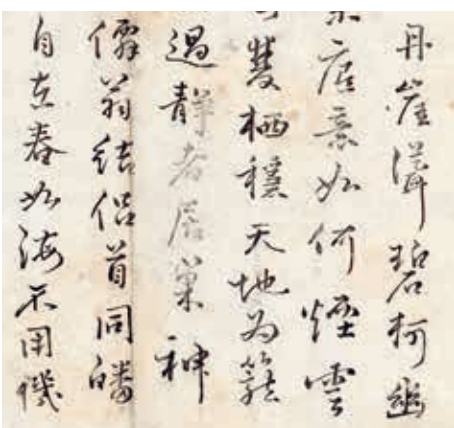 丹崖碧柯幽
居意如何煙雲
雙栖穩天地為籠
過靜者居巢神
僊翁結侶首同皤
自在春如海不用機